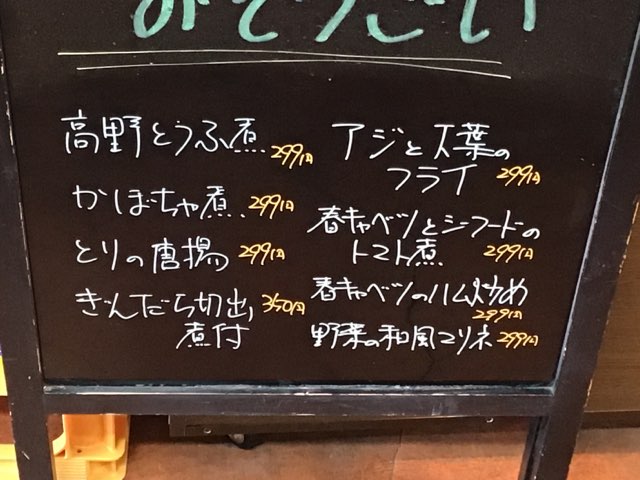 おそうざい
高野とうふ煮 299円
かぼちゃ煮 299円
とりの唐揚 299円
ぎんだら切出し 350円
煮付
アジと大葉の
フライ 299円
春キャベツとシーフードの
トマト煮 299円
春キャベツのハム炒め
299円
野菜の和風マリネ 299円